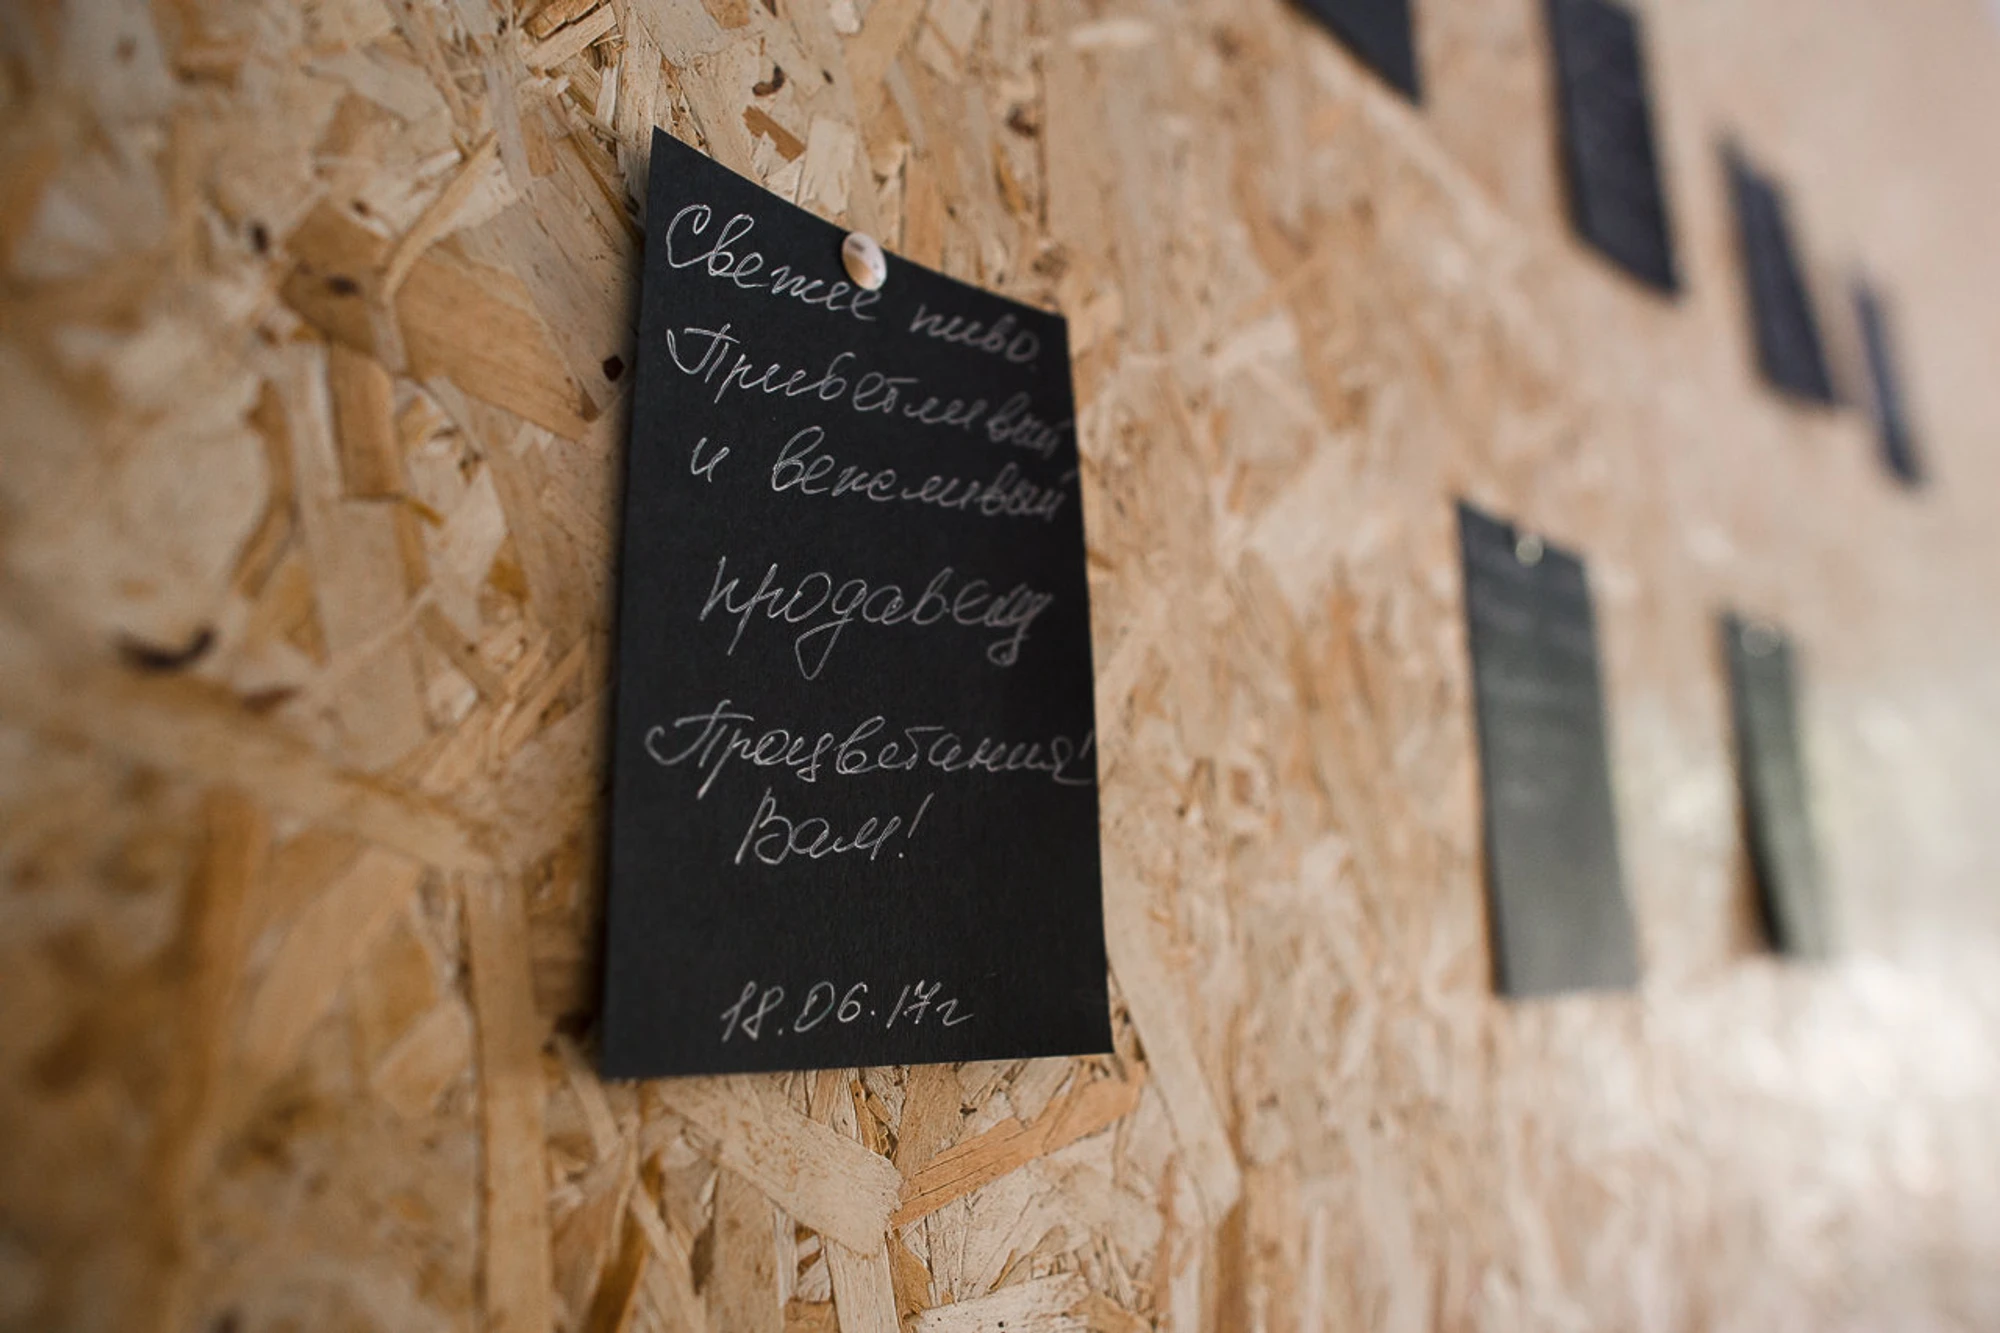 Свежее пиво.
Приветливый
и вежливый
продавец
Процветания!
Вам!
18.06.17г